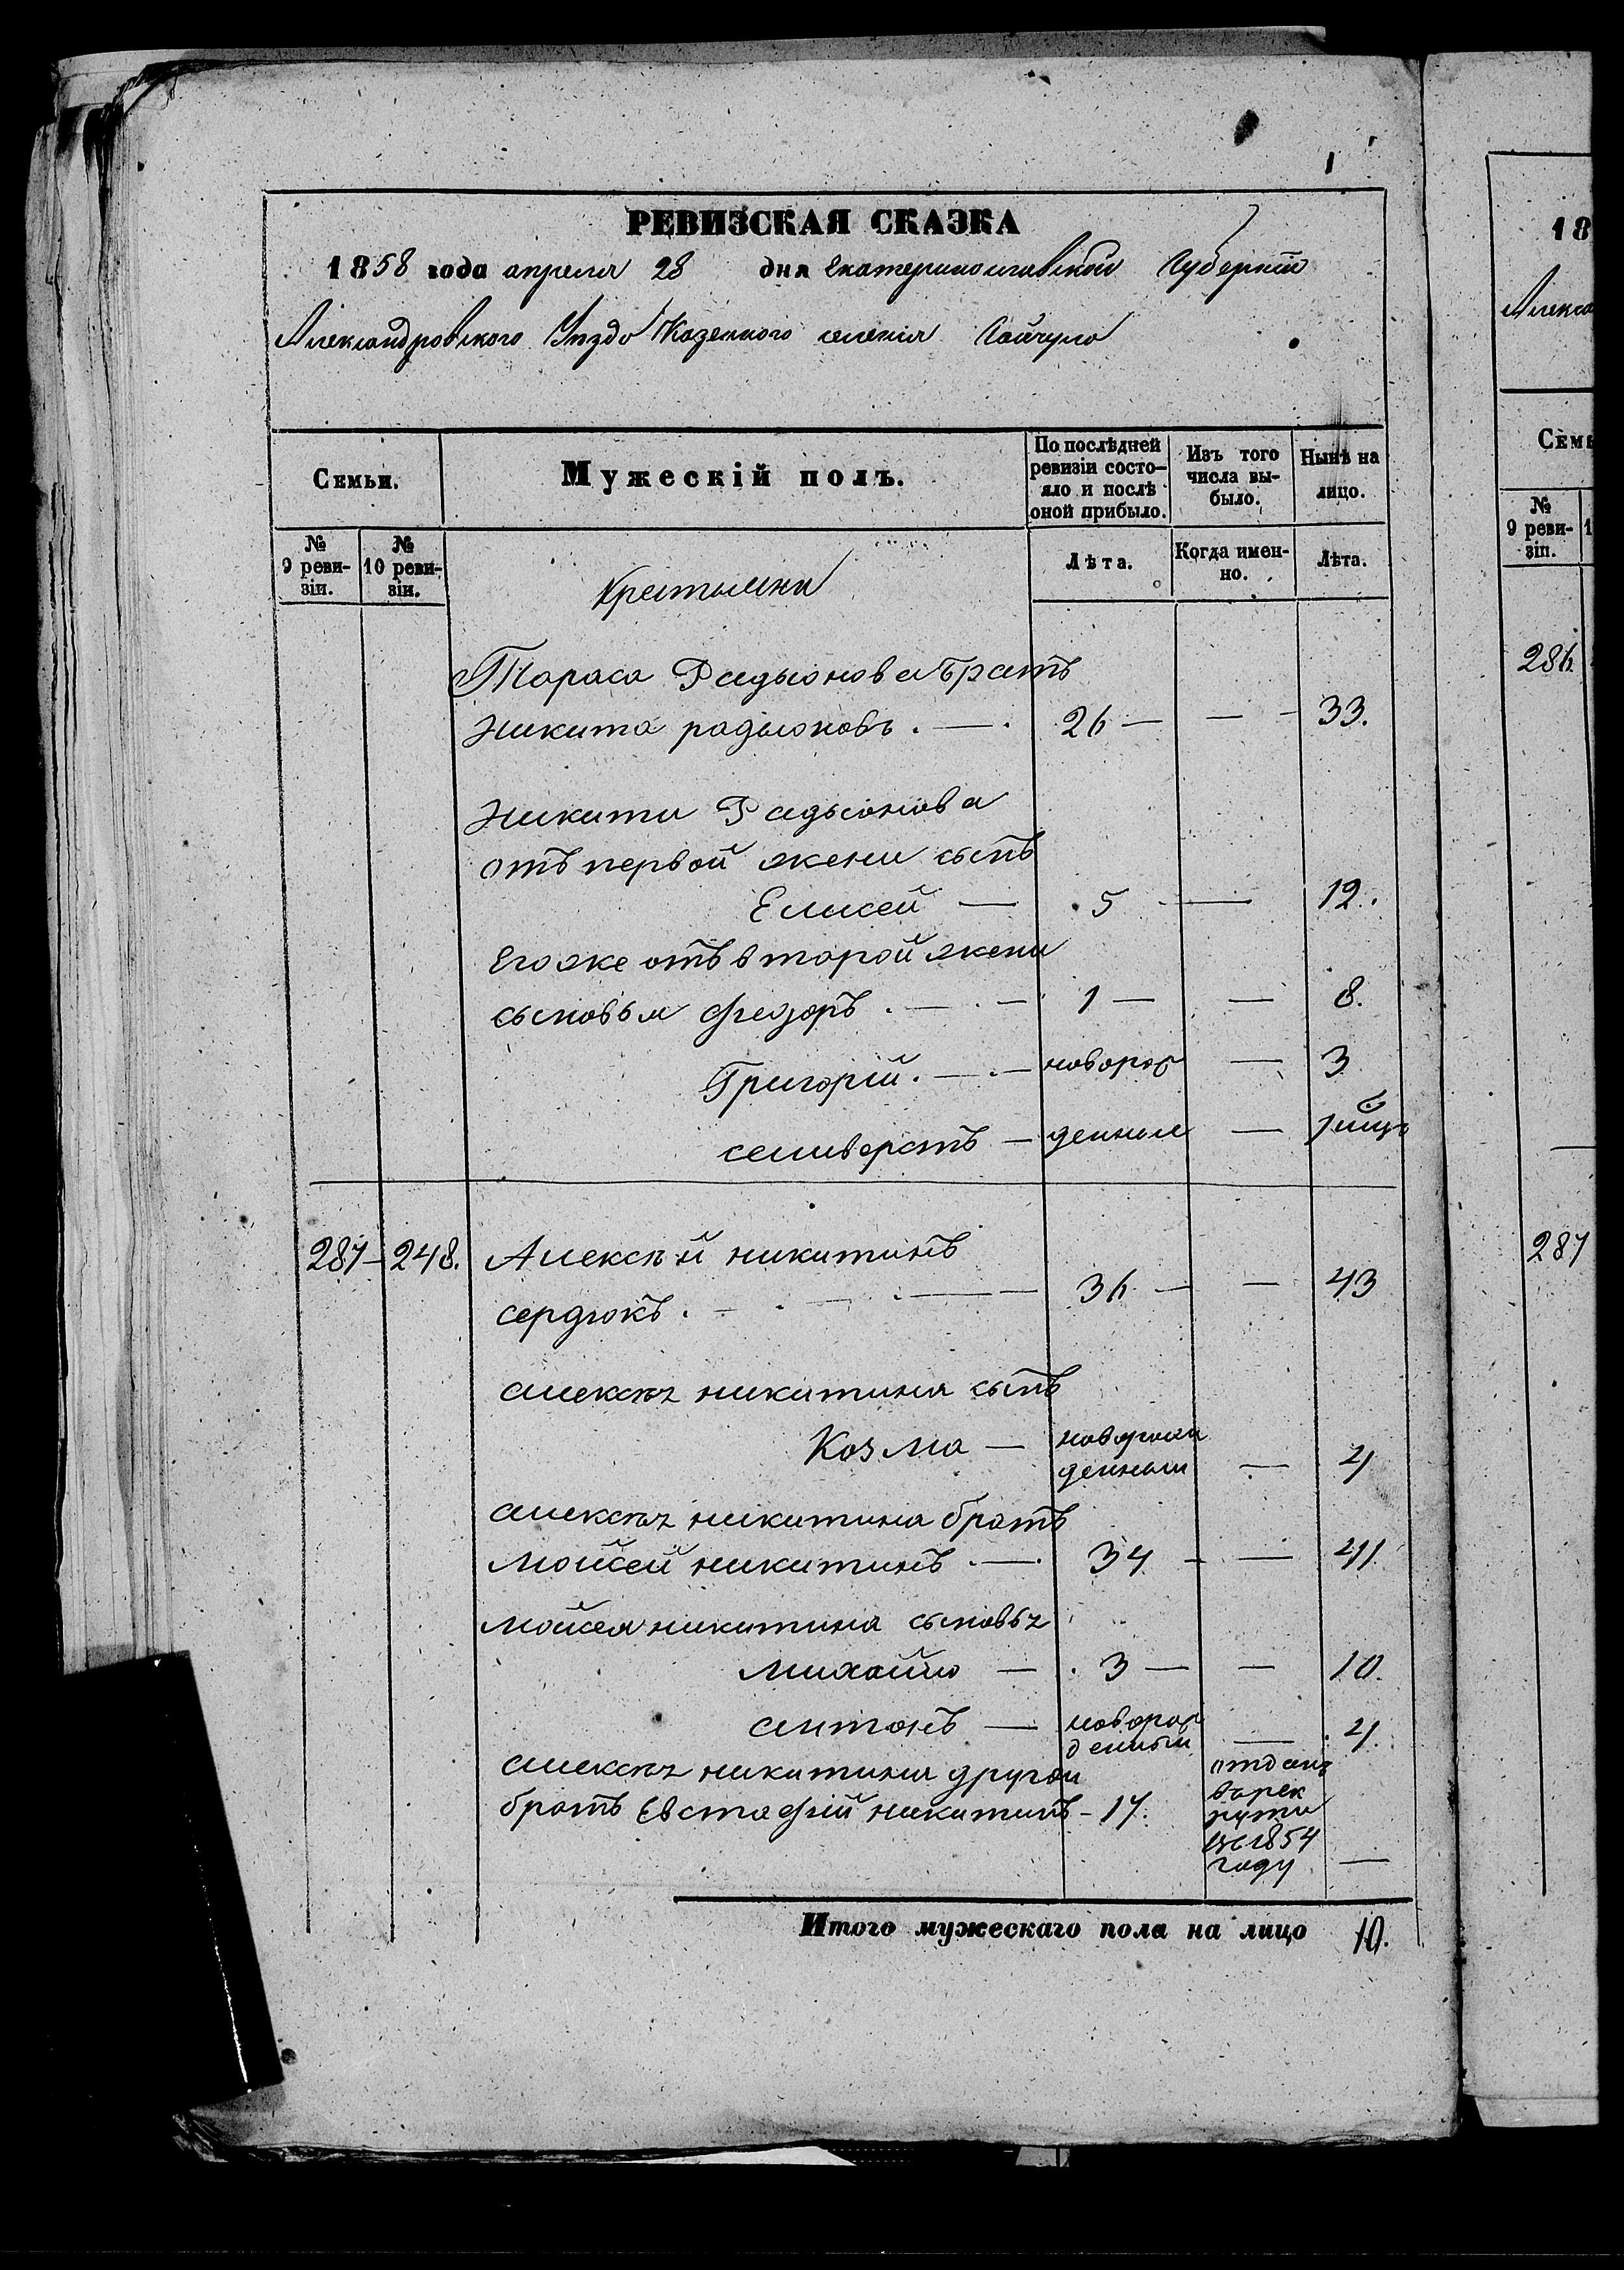 РЕВИЗСКАЯ СКАЗКА
1858 года апреля 28 дня Екатеринославской Губерніи
Александровского Уѣзда Казенного селенія Гайчула
Семьи.
Мужескій полъ.
По послѣдней ревизіи состо-
яло и послѣ
оной прибыло.
Изъ того
числа вы-
было.
Нынѣ на
лицо.
№
9 реви-
зіи.
№
10 реви-
зіи.
Крестьяни
Лѣта.
Когда имен-
но.
Лѣта.
Тараса Радыонова братъ
Никита радыоновъ . — . 26 — — 33.
Никити Радыонова
отъ первой жени сынъ
Елисей — 5 — 12.
Его же отъ второй жени
сыновья Федоръ . — . — 1 — — 8.
Григорій . — . — новорож — 3
селиверстъ — денные — 1 мцъ
287 — 248. Алексѣй никитинъ
сердюкъ . — 36 — — 43
алексѣя никитина сынъ
Козма — новорож
денный — 4
алексѣя никитина братъ
Мойсей никитинъ . — . 34 — — 41
мойсея никитина сыновья
михайло — 3 — — 10.
антонъ — новорож
денный — 4.
алексѣя никитина другой
братъ Евстафій никитинъ — 17.
отданъ
въ рек
рути
въ 1854
году —
Итого мужескаго пола на лицо 10.
18
Алекса
Семь
№
9 реви-
зіи.
286
287